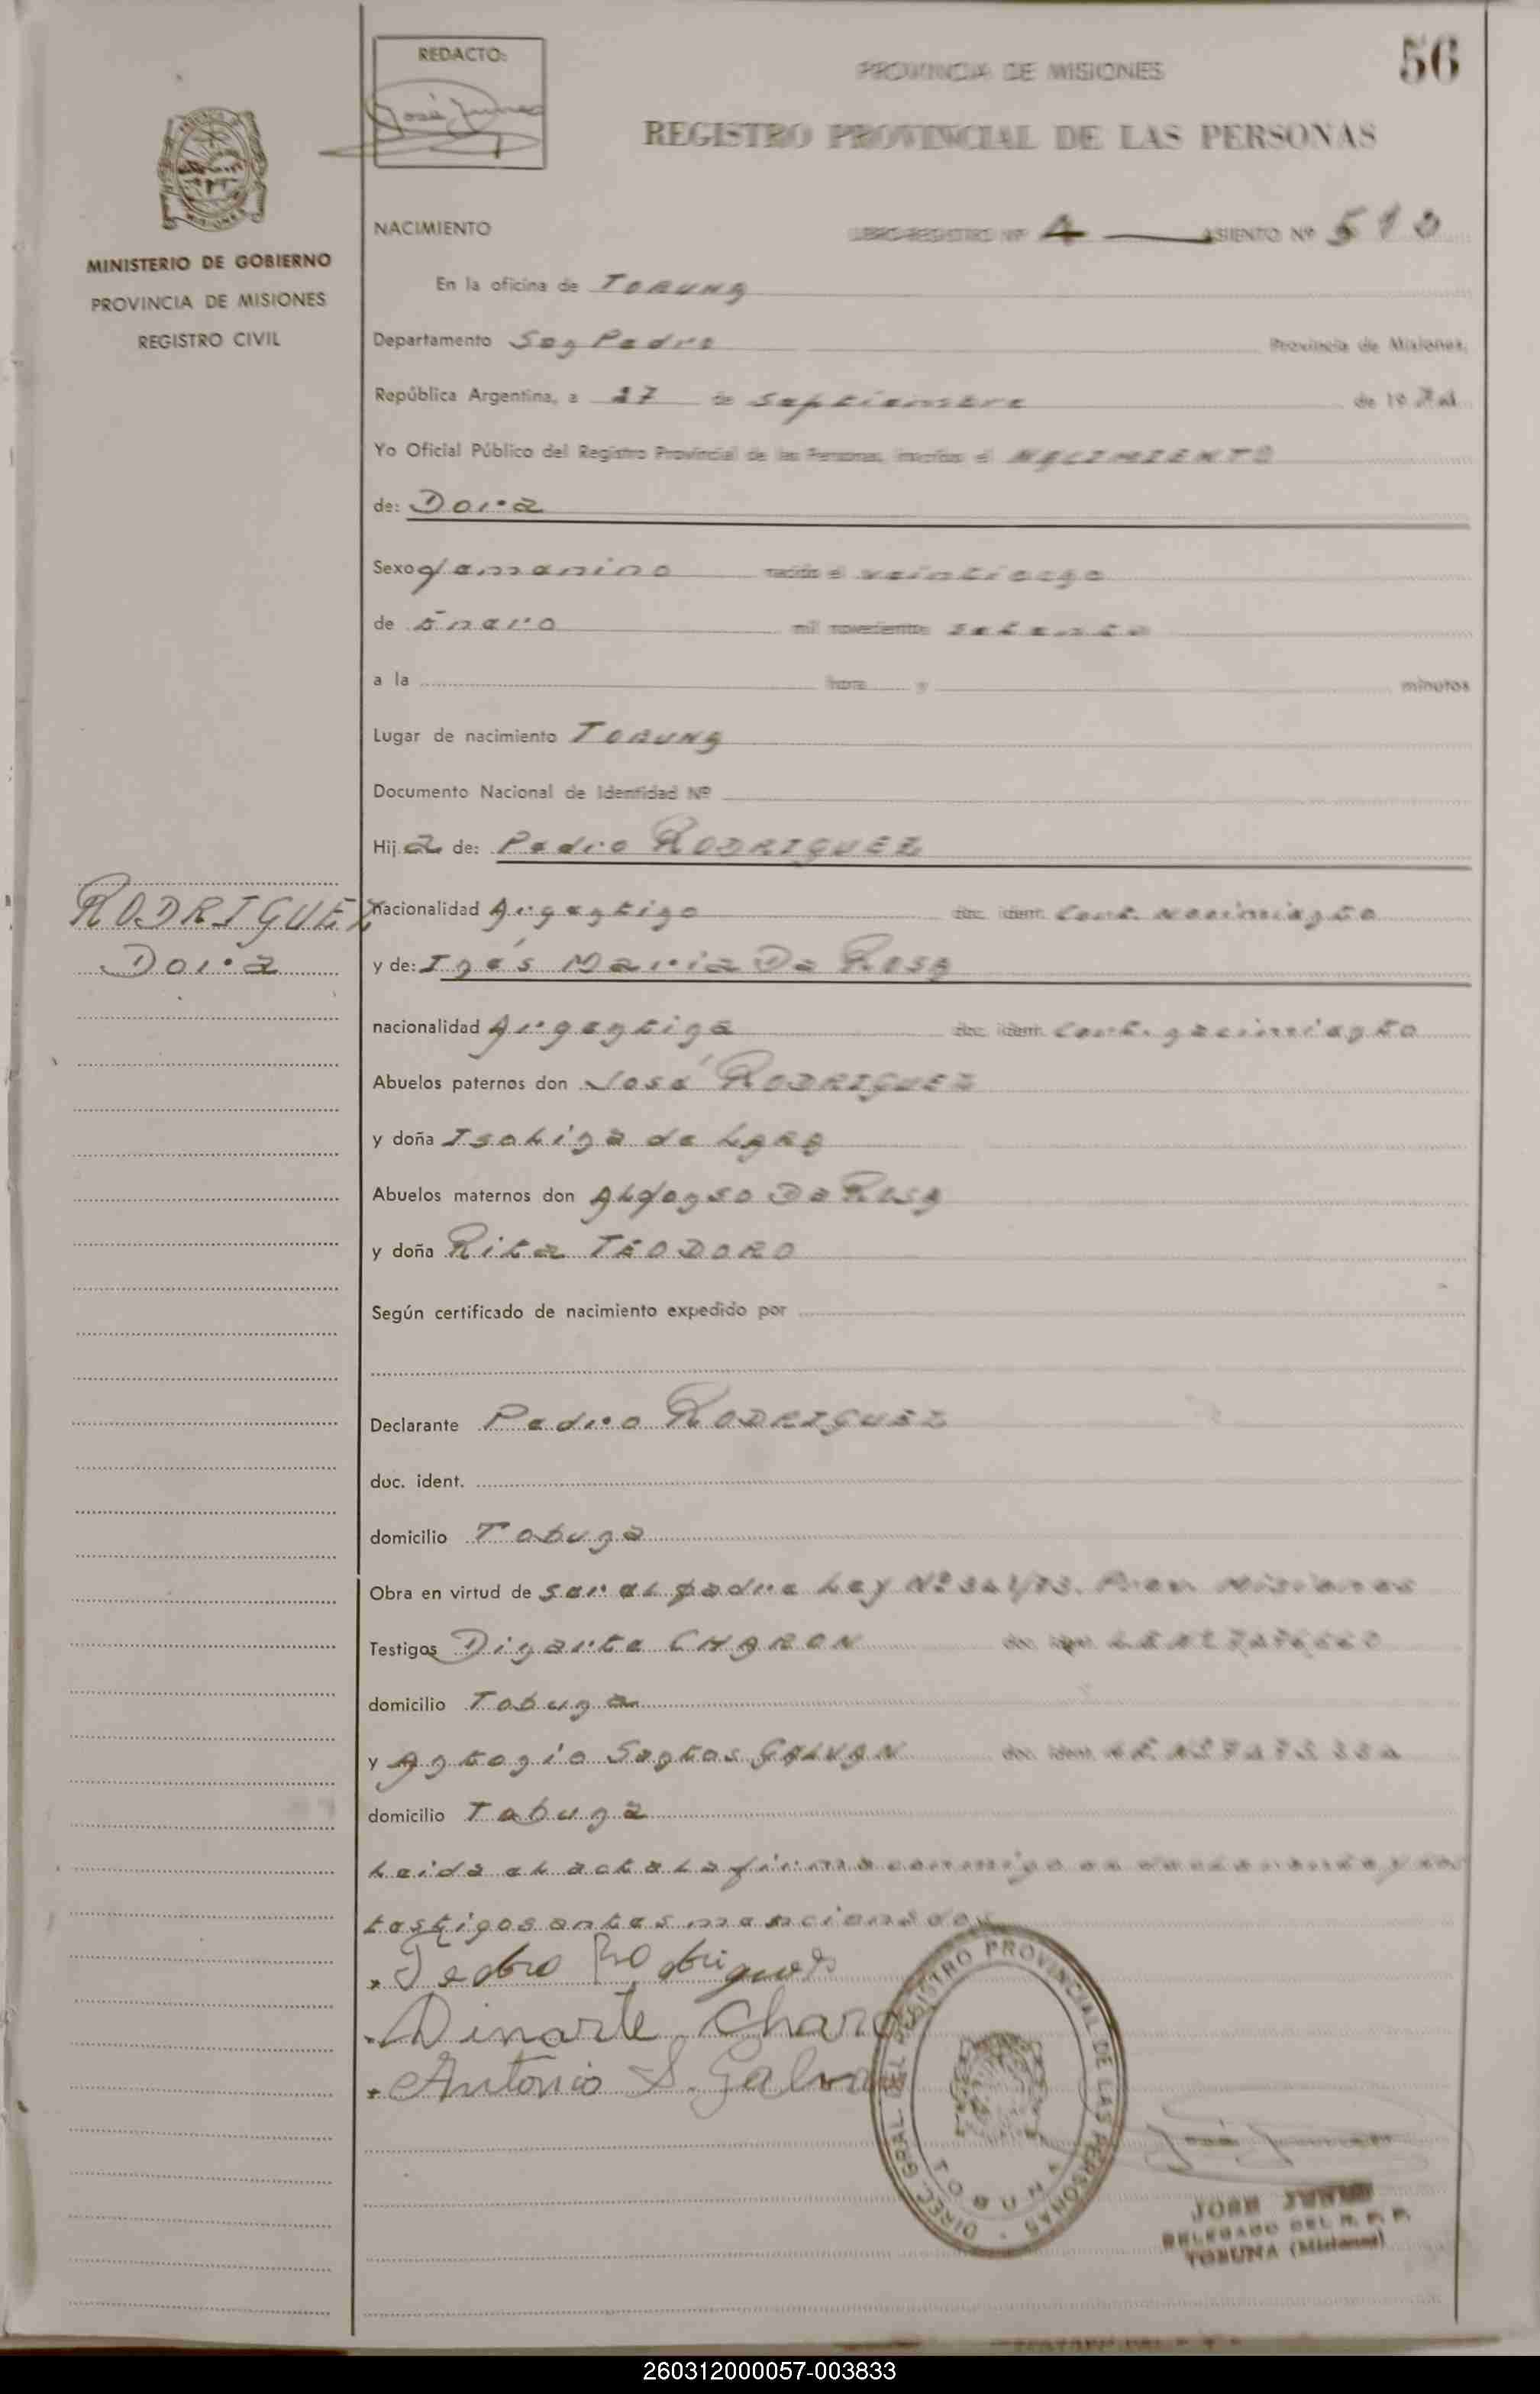 56
REDACTO:
PROVINCIA DE MISIONES
REGISTRO PROVINCIAL DE LAS PERSONAS
MISIONES
MINISTERIO DE GOBIERNO
PROVINCIA DE MISIONES
REGISTRO CIVIL
NACIMIENTO LIBRO-REGISTRO Nº 4 ASIENTO Nº 510
En la oficina de TOBUNA
Departamento San Pedro Provincia de Misiones,
República Argentina, a 27 de septiembre de 19
Yo Oficial Público del Registro Provincial de las Personas, inscribo el NACIMIENTO
de: Dora
Sexo femenino nacido el veintiocho
de Enero mil novecientos setenta
a la hora y minutos
Lugar de nacimiento TOBUNA
Documento Nacional de Identidad Nº
Hija de: Pedro RODRIGUEZ
RODRIGUEZ
Dora
nacionalidad Argentino doc. ident. Cert. Nacimiento
y de: Inés Maria Da Rosa
nacionalidad Argentina doc. ident. Cert. nacimiento
Abuelos paternos don José RODRIGUEZ
y doña Isolina de LARA
Abuelos maternos don Alfonso Da Rosa
y doña Rita TEODORO
Según certificado de nacimiento expedido por
Declarante Pedro RODRIGUEZ
doc. ident.
domicilio Tobuna
Obra en virtud de ser el padre Ley Nº 341/73. Misiones
Testigos Dinarte CHARON doc. ident.
domicilio Tobuna
y Antonio Santos GALVAN doc. ident.
domicilio Tobuna
Leida el acta la firma conmigo el declarante y los
testigos antes mencionados
Pedro Rodrigues
Dinarte Charo
Antonio S. Galvan
DIREC. GRAL. DEL REGISTRO PROVINCIAL DE LAS PERSONAS
TOBUNA
JOSE JUNIO
DELEGADO DEL R. P. P.
TOBUNA (Misiones)
260312000057-003833